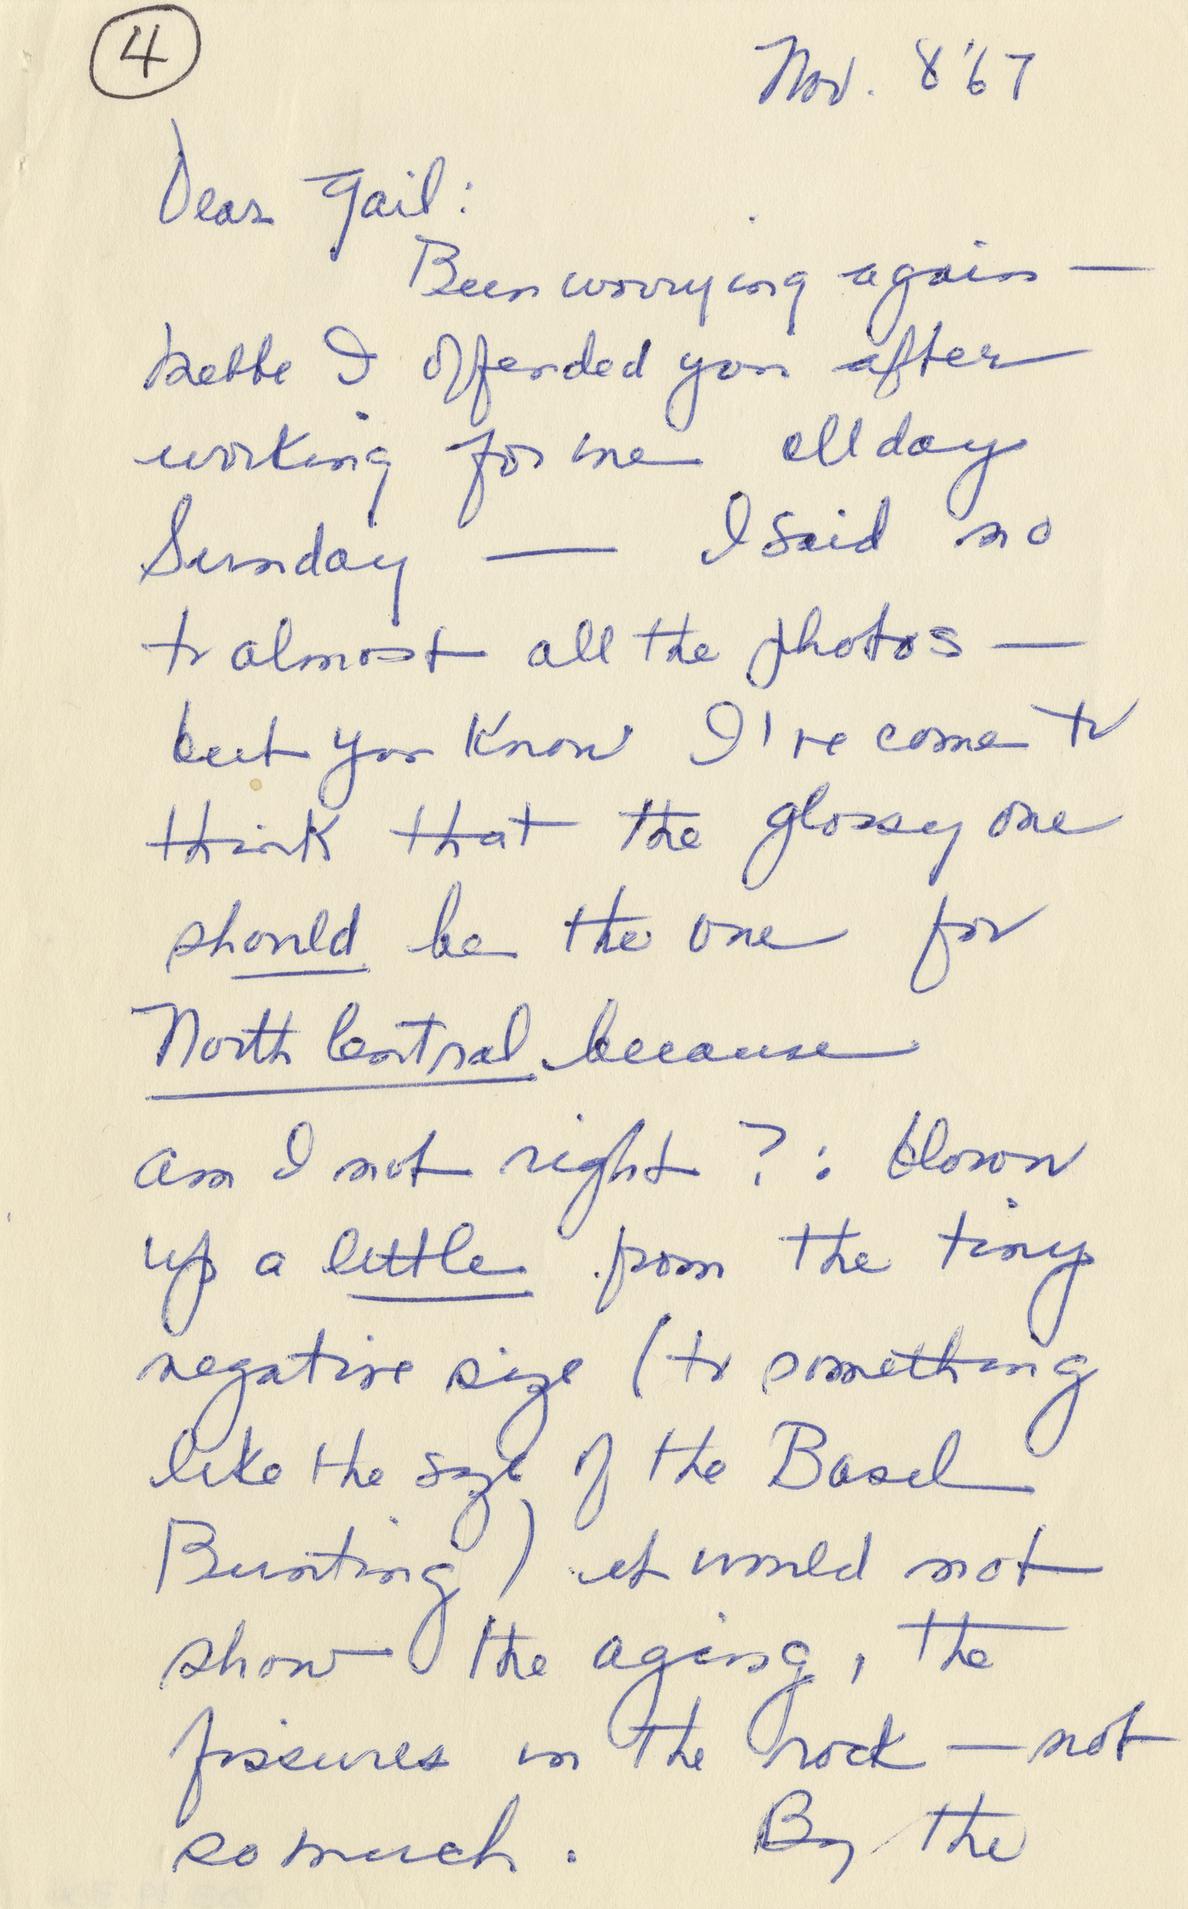 4
Nov. 8 '67
Dear Gail:
Been worrying again —
bette I offended you after
working for me all day
Sunday — I said no
to almost all the photos —
but you know I've come to
think that the glossy one
should be the one for
North Central because
am I not right ? : blown
up a little from the tiny
negative size (to something
like the size of the Basil
Bunting) it would not
show the aging, the
fissures in the rock — not
so much. By the